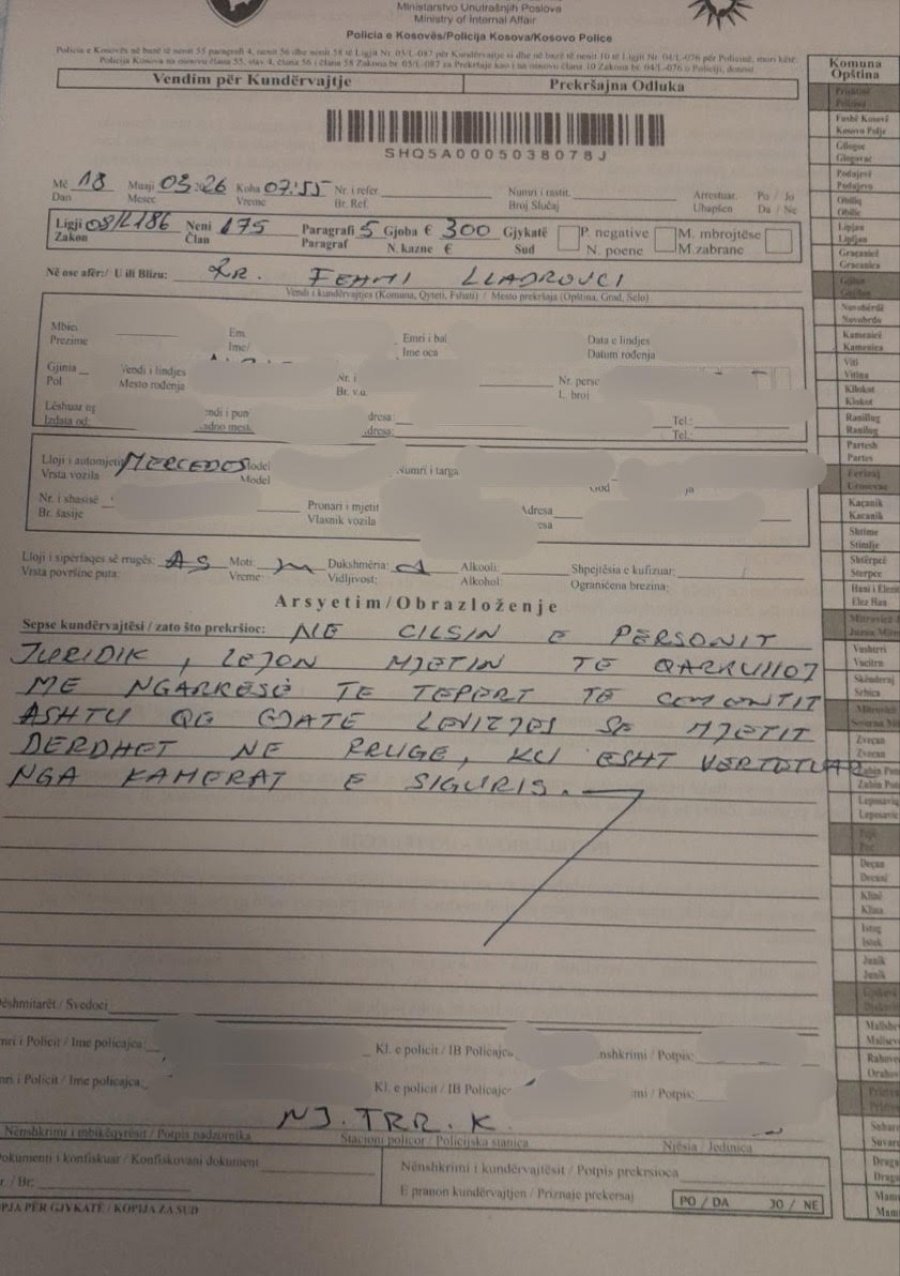 Ministarstvo Unutrašnjih Poslova
Ministry of Internal Affair
Policia e Kosovës/Policija Kosova/Kosovo Police
Policia e Kosovës në bazë të nenit 55 paragrafi 4, nenit 56 dhe nenit 58 të Ligjit Nr. 05/L-087 për Kundërvajtje si dhe në bazë të nenit 10 të Ligjit Nr. 04/L-076 për Policinë, merr këtë
Policija Kosova na osnovu člana 55, stav 4, člana 56 i člana 58 Zakona br. 05/L-087 za Prekršaje kao i na osnovu člana 10 Zakona br. 04/L-076 o Policiji, donosi
Vendim për Kundërvajtje Prekršajna Odluka
SHQ5A0005038078J
Më 18 Muaji 03 2026 Koha 07:55 Nr. i refer. Numri i rastit. Arrestuar Po / Jo
Dan Mesec Vreme Br. Ref. Broj Slučaj Uhapšen Da / Ne
Ligji 08/L186 Neni 175 Paragrafi 5 Gjoba € 300 Gjykatë P. negative M. mbrojtëse
Zakon Član Paragraf N. kazne € Sud N. poene M. zabrane
Në ose afër:/ U ili Blizu: RR. FEHMI LLADROVCI
Vendi i kundërvajtjes (Komuna, Qyteti, Fshati) / Mesto prekršaja (Opština, Grad, Selo)
Mbiemri Em Emri i ba Data e lindjes
Prezime Ime/ Ime oca Datum rođenja
Gjinia Vendi i lindjes Nr. i Nr. perso
Pol Mesto rođenja Br. v.u. L. broj
Lëshuar ng Tel.:
Izdata od: Tel.:
Lloji i automjetit MERCEDES Model Numri i targa
Vrsta vozila Model
Nr. i shasisë Pronari i mjetit Adresa
Br. šasije Vlasnik vozila
Lloji i sipërfaqes së rrugës: AS Moti: Dukshmëria: Alkooli: Shpejtësia e kufizuar:
Vrsta površine puta: Vreme: Vidljivost: Alkohol: Ograničena brezina:
Arsyetim/Obrazloženje
Sepse kundërvajtësi / zato što prekršioc: NE CILSIN E PERSONIT
JURIDIK, LEJON MJETIN TE QARKULLOJ
ME NGARKESË TE TEPERT TE COMONTIT
ASHTU QE GJATE LEVIZJES SE MJETIT
DERDHET NE RRUGE, KU ESHT VERTETUAR
NGA KAMERAT E SIGURIS.
Dëshmitarët / Svedoci
Emri i Policit / Ime policajca: Kl. e policit / IB Policajca
Emri i Policit / Ime policajca Kl. e policit / IB Policajca
NJ.TRR.K.
Nënshkrimi i mbikëqyrësit / Potpis nadzornika Stacioni policor / Policijska stanica Njësia / Jedinica
Dokumenti i konfiskuar / Konfiskovani dokument Nënshkrimi i kundërvajtësit / Potpis prekrsioca
E pranon kundërvajtjen / Priznaje prekersaj PO / DA JO / NE
KOPJA PËR GJYKATË / KOPIJA ZA SUD
Komuna
Opština
Fushë Kosovë
Kosovo Polje
Gllogoc
Glogovac
Podujevë
Podujevo
Obiliq
Obilić
Lipjan
Lipljan
Graçanicë
Gracanica
Novobërdë
Novobrdo
Kamenicë
Kamenica
Viti
Vitina
Kllokot
Klokot
Ranillug
Ranilug
Partesh
Partes
Kaçanik
Kacanik
Shtime
Stimlje
Shtërpcë
Sterpce
Hani i Elezit
Elez Han
Vushtrri
Vucitrn
Skënderaj
Srbica
Zveçan
Zvecan
Zubin Potok
Zubin Potok
Leposaviq
Leposavic
Deçan
Decani
Klinë
Klina
Istog
Istok
Junik
Junik